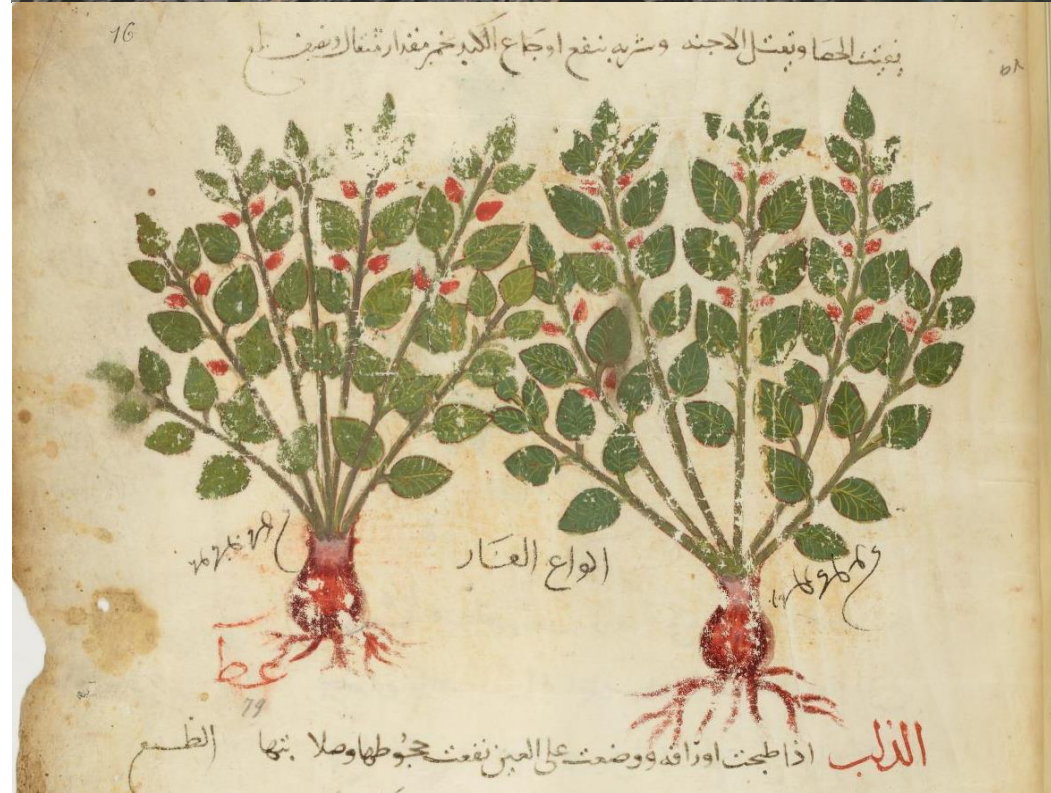 16
يفتت الحصا وتقتل الاجنه وشربه ينفع اوجاع الكبد خمر مقدار مثقال ونصف
انواع الغار
عط
79
الدلب اذا طبخت اوراقه ووضعت على العين نفعت جحوظها وصلابتها